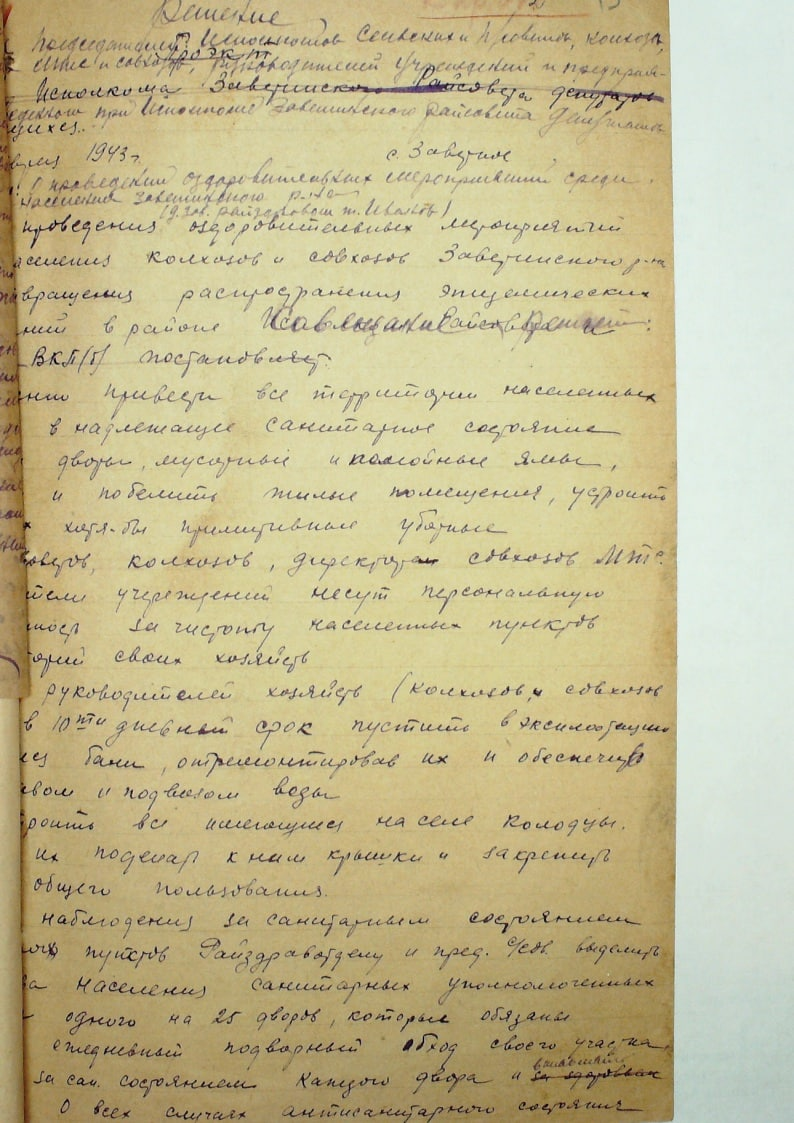 Решение
Председателей Исполкомов Сельских Советов, колхоз,
МТС и совхозов, руководителей учреждений и предприя-
Исполкома Заветинского Райсовета депутатов
при Исполкоме Заветинского райсовета депутатов
1943 г. с. Заветное
О проведении оздоровительных мероприятий среди
населения Заветинского р-на
(д. зав. райздравом т. Иванов)
проведения оздоровительных мероприятий
аселения колхозов и совхозов Заветинского р-на
вращения распространения эпидемических
ний в районе
ВКП(б) постановляет:
нно привести все территории населенных
в надлежащие санитарное состояние
дворы, мусорные и помойные ямы,
и побелить жилые помещения, устроить
хотя-бы примитивные уборные
оветов, колхозов, директора совхозов МТС.
тели учреждений несут персональную
ность за чистоту населенных пунктов
торий своих хозяйств
руководителей хозяйств (колхозов, совхозов
в 10ти дневный срок пустить в эксплоатацию
еся бани, отремонтировав их и обеспечив
вом и подвозом воды
роить все имеющиеся на селе колодцы.
их поделать к ним крышки и закрепить
общего пользования.
наблюдения за санитарным состоянием
ных пунктов Райздравотделу и пред. с/сов. выделить
за населения санитарных уполномоченных
одного на 25 дворов, которые обязаны
ежедневный подворный обход своего участка,
за сан. состоянием каждого двора и за здоровьем
О всех случаях антисанитарного состояния